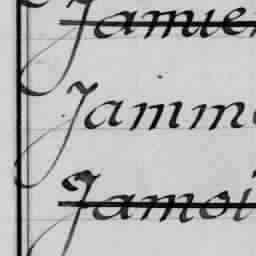 Jamuer
Jamme
Jamoi